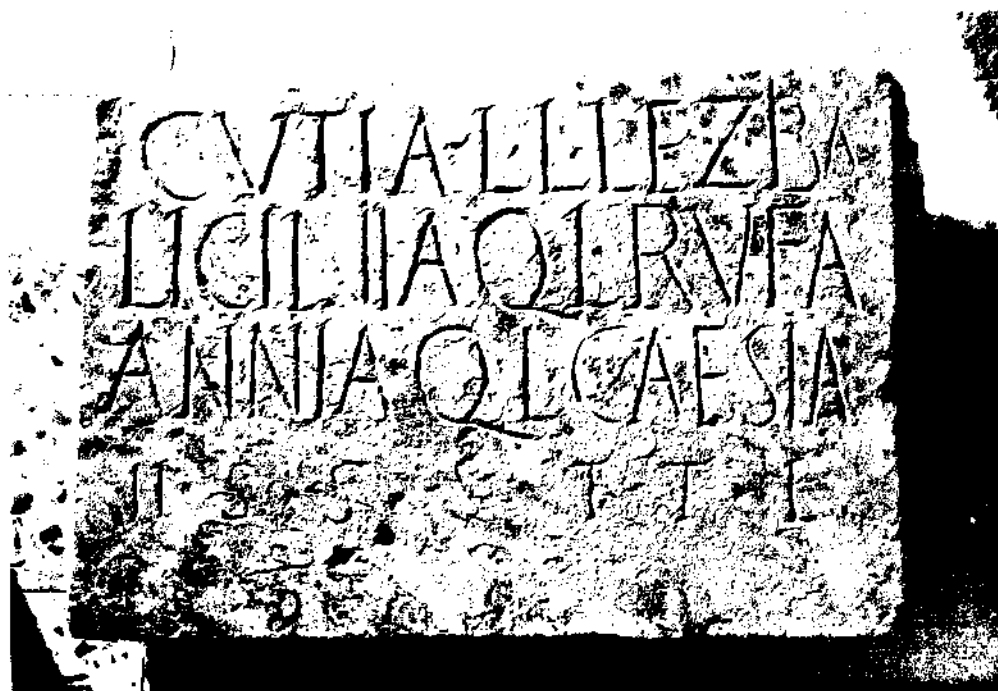 CVTIA·L·L·LEZBA
LICINIA Q L RVFA
ANNIA Q L CAESIA
H S S S T T L